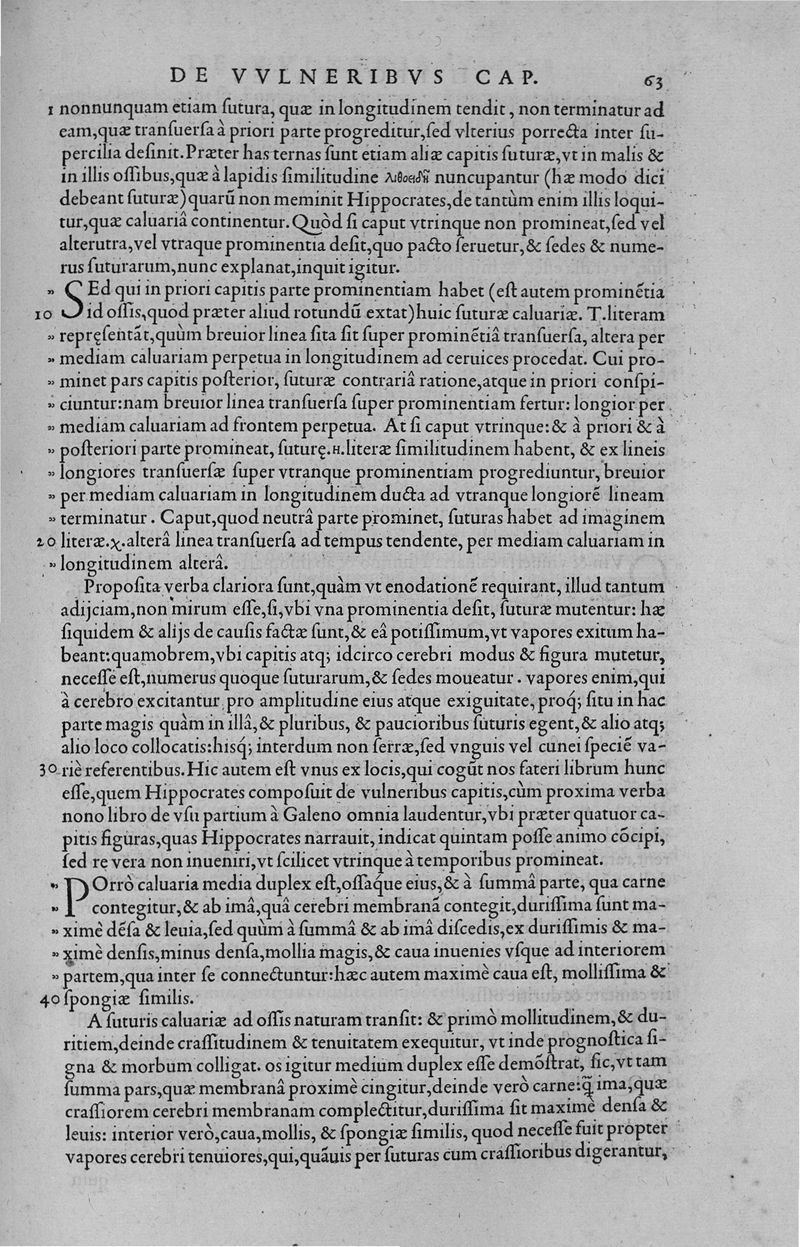 DE VVLNERIBVS CAP. 63
1 nonnunquam etiam ſutura, quæ in longitudinem tendit, non terminatur ad
eam,quæ tranſuerſa à priori parte progreditur,ſed vlterius porrecta inter ſu-
percilia deſinit.Præter has ternas ſunt etiam aliæ capitis ſuturæ,vt in malis &
in illis oſſibus,quæ à lapidis ſimilitudine λιθοειδῆ nuncupantur (hæ modo dici
debeant ſuturæ)quarũ non meminit Hippocrates,de tantùm enim illis loqui-
tur,quæ caluariâ continentur.Quòd ſi caput vtrinque non promineat,ſed vel
alterutra,vel vtraque prominentia deſit,quo pacto ſeruetur,& ſedes & nume-
rus ſuturarum,nunc explanat,inquit igitur.
” SEd qui in priori capitis parte prominentiam habet (eſt autem prominẽtia
10 id oſſis,quod præter aliud rotundũ extat)huic ſuturæ caluariæ. T.literam
” repręſentãt,quùm breuior linea ſita ſit ſuper prominẽtiâ tranſuerſa, altera per
” mediam caluariam perpetua in longitudinem ad ceruices procedat. Cui pro-
” minet pars capitis poſterior, ſuturæ contrariâ ratione,atque in priori conſpi-
” ciuntur:nam breuior linea tranſuerſa ſuper prominentiam fertur: longior per
” mediam caluariam ad frontem perpetua. At ſi caput vtrinque:& à priori & à
” poſteriori parte promineat, ſuturę.H.literæ ſimilitudinem habent, & ex lineis
” longiores tranſuerſæ ſuper vtranque prominentiam progrediuntur, breuior
” per mediam caluariam in longitudinem ducta ad vtranque longiorẽ lineam
” terminatur. Caput,quod neutrâ parte prominet, ſuturas habet ad imaginem
20 literæ.χ.alterâ linea tranſuerſa ad tempus tendente, per mediam caluariam in
” longitudinem alterâ.
Propoſita verba clariora ſunt,quàm vt enodationẽ requirant, illud tantum
adijciam,non mirum eſſe,ſi,vbi vna prominentia deſit, ſuturæ mutentur: hæ
ſiquidem & alijs de cauſis factæ ſunt,& eâ potiſſimum,vt vapores exitum ha-
beant:quamobrem,vbi capitis atq; idcirco cerebri modus & figura mutetur,
neceſſe eſt,numerus quoque ſuturarum,& ſedes moueatur. vapores enim,qui
à cerebro excitantur pro amplitudine eius atque exiguitate, proq́; ſitu in hac
parte magis quàm in illâ,& pluribus, & paucioribus ſuturis egent,& alio atq;
alio loco collocatis:hisq́; interdum non ſerræ,ſed vnguis vel cunei ſpeciẽ va-
30 riè referentibus.Hic autem eſt vnus ex locis,qui cogũt nos fateri librum hunc
eſſe,quem Hippocrates compoſuit de vulneribus capitis,cùm proxima verba
nono libro de vſu partium à Galeno omnia laudentur,vbi præter quatuor ca-
pitis figuras,quas Hippocrates narrauit, indicat quintam poſſe animo cõcipi,
ſed re vera non inueniri,vt ſcilicet vtrinque à temporibus promineat.
” POrrò caluaria media duplex eſt,oſſaq́ue eius,& à ſummâ parte, qua carne
” contegitur,& ab imâ,quâ cerebri membranã contegit,duriſſima ſunt ma-
” ximè dẽſa & leuia,ſed quùm à ſummâ & ab imâ diſcedis,ex duriſſimis & ma-
” ximè denſis,minus denſa,mollia magis,& caua inuenies vſque ad interiorem
” partem,qua inter ſe connectuntur:hæc autem maximè caua eſt, molliſſima &
40 ſpongiæ ſimilis.
A ſuturis caluariæ ad oſſis naturam tranſit: & primò mollitudinem,& du-
ritiem,deinde craſſitudinem & tenuitatem exequitur, vt inde prognoſtica ſi-
gna & morbum colligat. os igitur medium duplex eſſe demõſtrat, ſic,vt tam
ſumma pars,quæ membranâ proximè cingitur,deinde verò carne:q̃ ima,quæ
craſſiorem cerebri membranam complectitur,duriſſima ſit maximè denſa &
leuis: interior verò,caua,mollis, & ſpongiæ ſimilis, quod neceſſe fuit propter
vapores cerebri tenuiores,qui,quãuis per ſuturas cum craſſioribus digerantur,